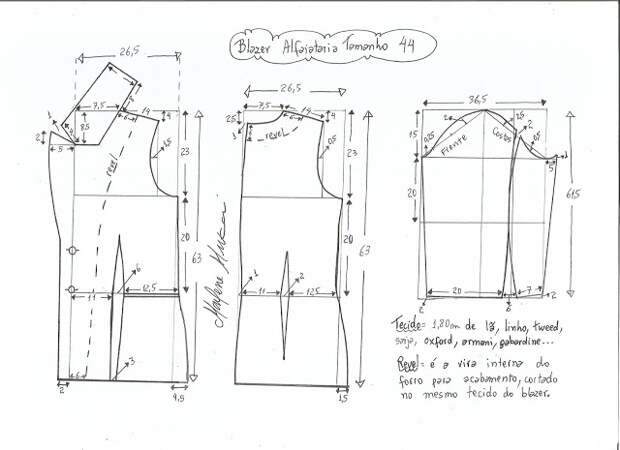 Blazer Alfaiataria Tamanho 44
26,5
7,5
14
4
1
2
8,5
5
6
revel
0,5
23
20
63
6
11
12,5
3
2
6
4,5
Marlene Mukai
26,5
7,5
14
4
2,5
3
6
revel
0,5
23
20
63
1
2
11
12,5
1,5
36,5
15
0,25
2
Frente
Costas
2
0,5
1
5
20
61,5
20
7
2
6
2
Tecido= 1,80cm de lã, linho, tweed,
sarja, oxford, armani, gabardine...
Revel= é a vira interna do
forro para acabamento, cortado
no mesmo tecido do blazer.